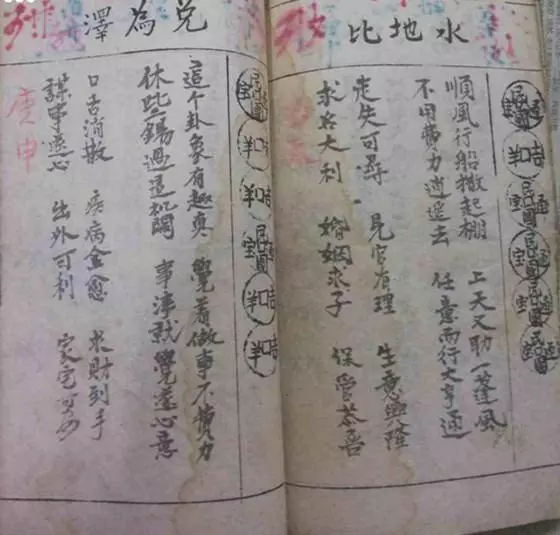 水地比
順風行船撒起棚 上天又助一蓬風
不用費力逍遥去 任意而行大亨通
走失可尋 見官有理 生意興隆
求名大利 婚姻求子 保管恭喜
兌為澤
這个卦象有趣真 覺着做事不費力
休些錫過這机関 事 就覺遂心意
口舌消散 疾病全愈 求財到手
謀事遂心 出外可利 家宅可
庚申